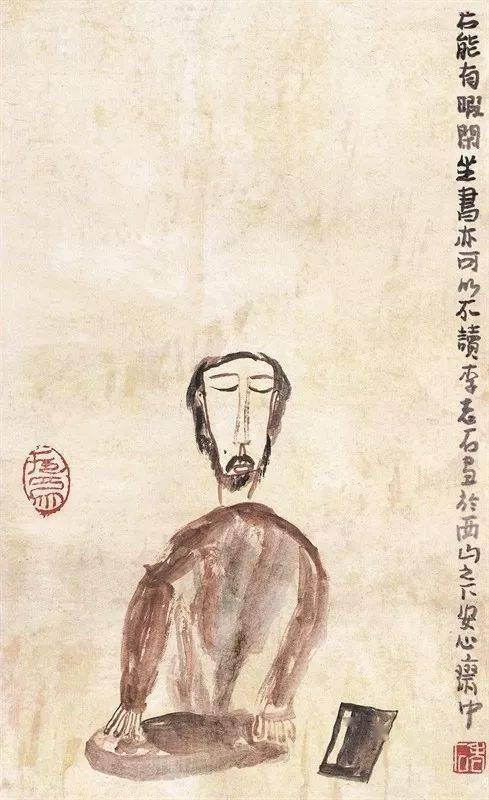 若能有暇閑坐書亦可以不讀李老石畫於西山之下安心齋中
老石